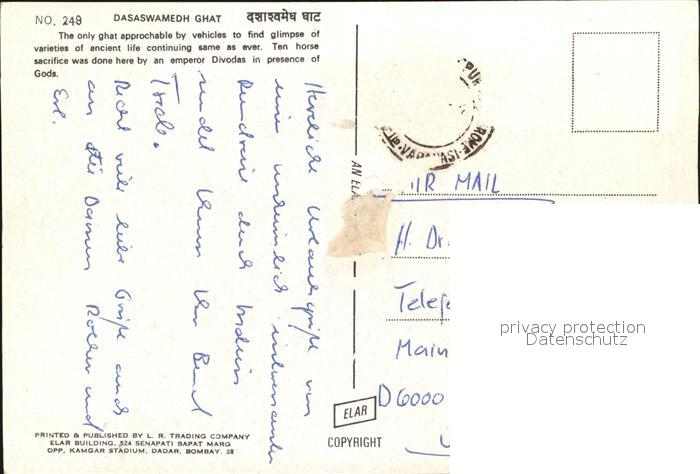 NO. 249
DASASWAMEDH GHAT दशाश्वमेध घाट
The only ghat approchable by vehicles to find glimpse of
varieties of ancient life continuing same as ever. Ten horse
sacrifice was done here by an emperor Divodas in presence of
Gods.
Herzliche Urlaubsgrüße von
einer unheimlich interessanten
Rundreise durch Indien
sendet Ihnen Ihr Bernd
Recht viele liebe Grüße auch
an die Damen und
AIR MAIL
H. Dr.
Main
D 6000
AN ELA
ELAR
COPYRIGHT
VARANASI
PRINTED & PUBLISHED BY L. R. TRADING COMPANY
ELAR BUILDING, 524 SENAPATI BAPAT MARG
OPP, KAMGAR STADIUM, DADAR, BOMBAY. 28
privacy protection
Datenschutz